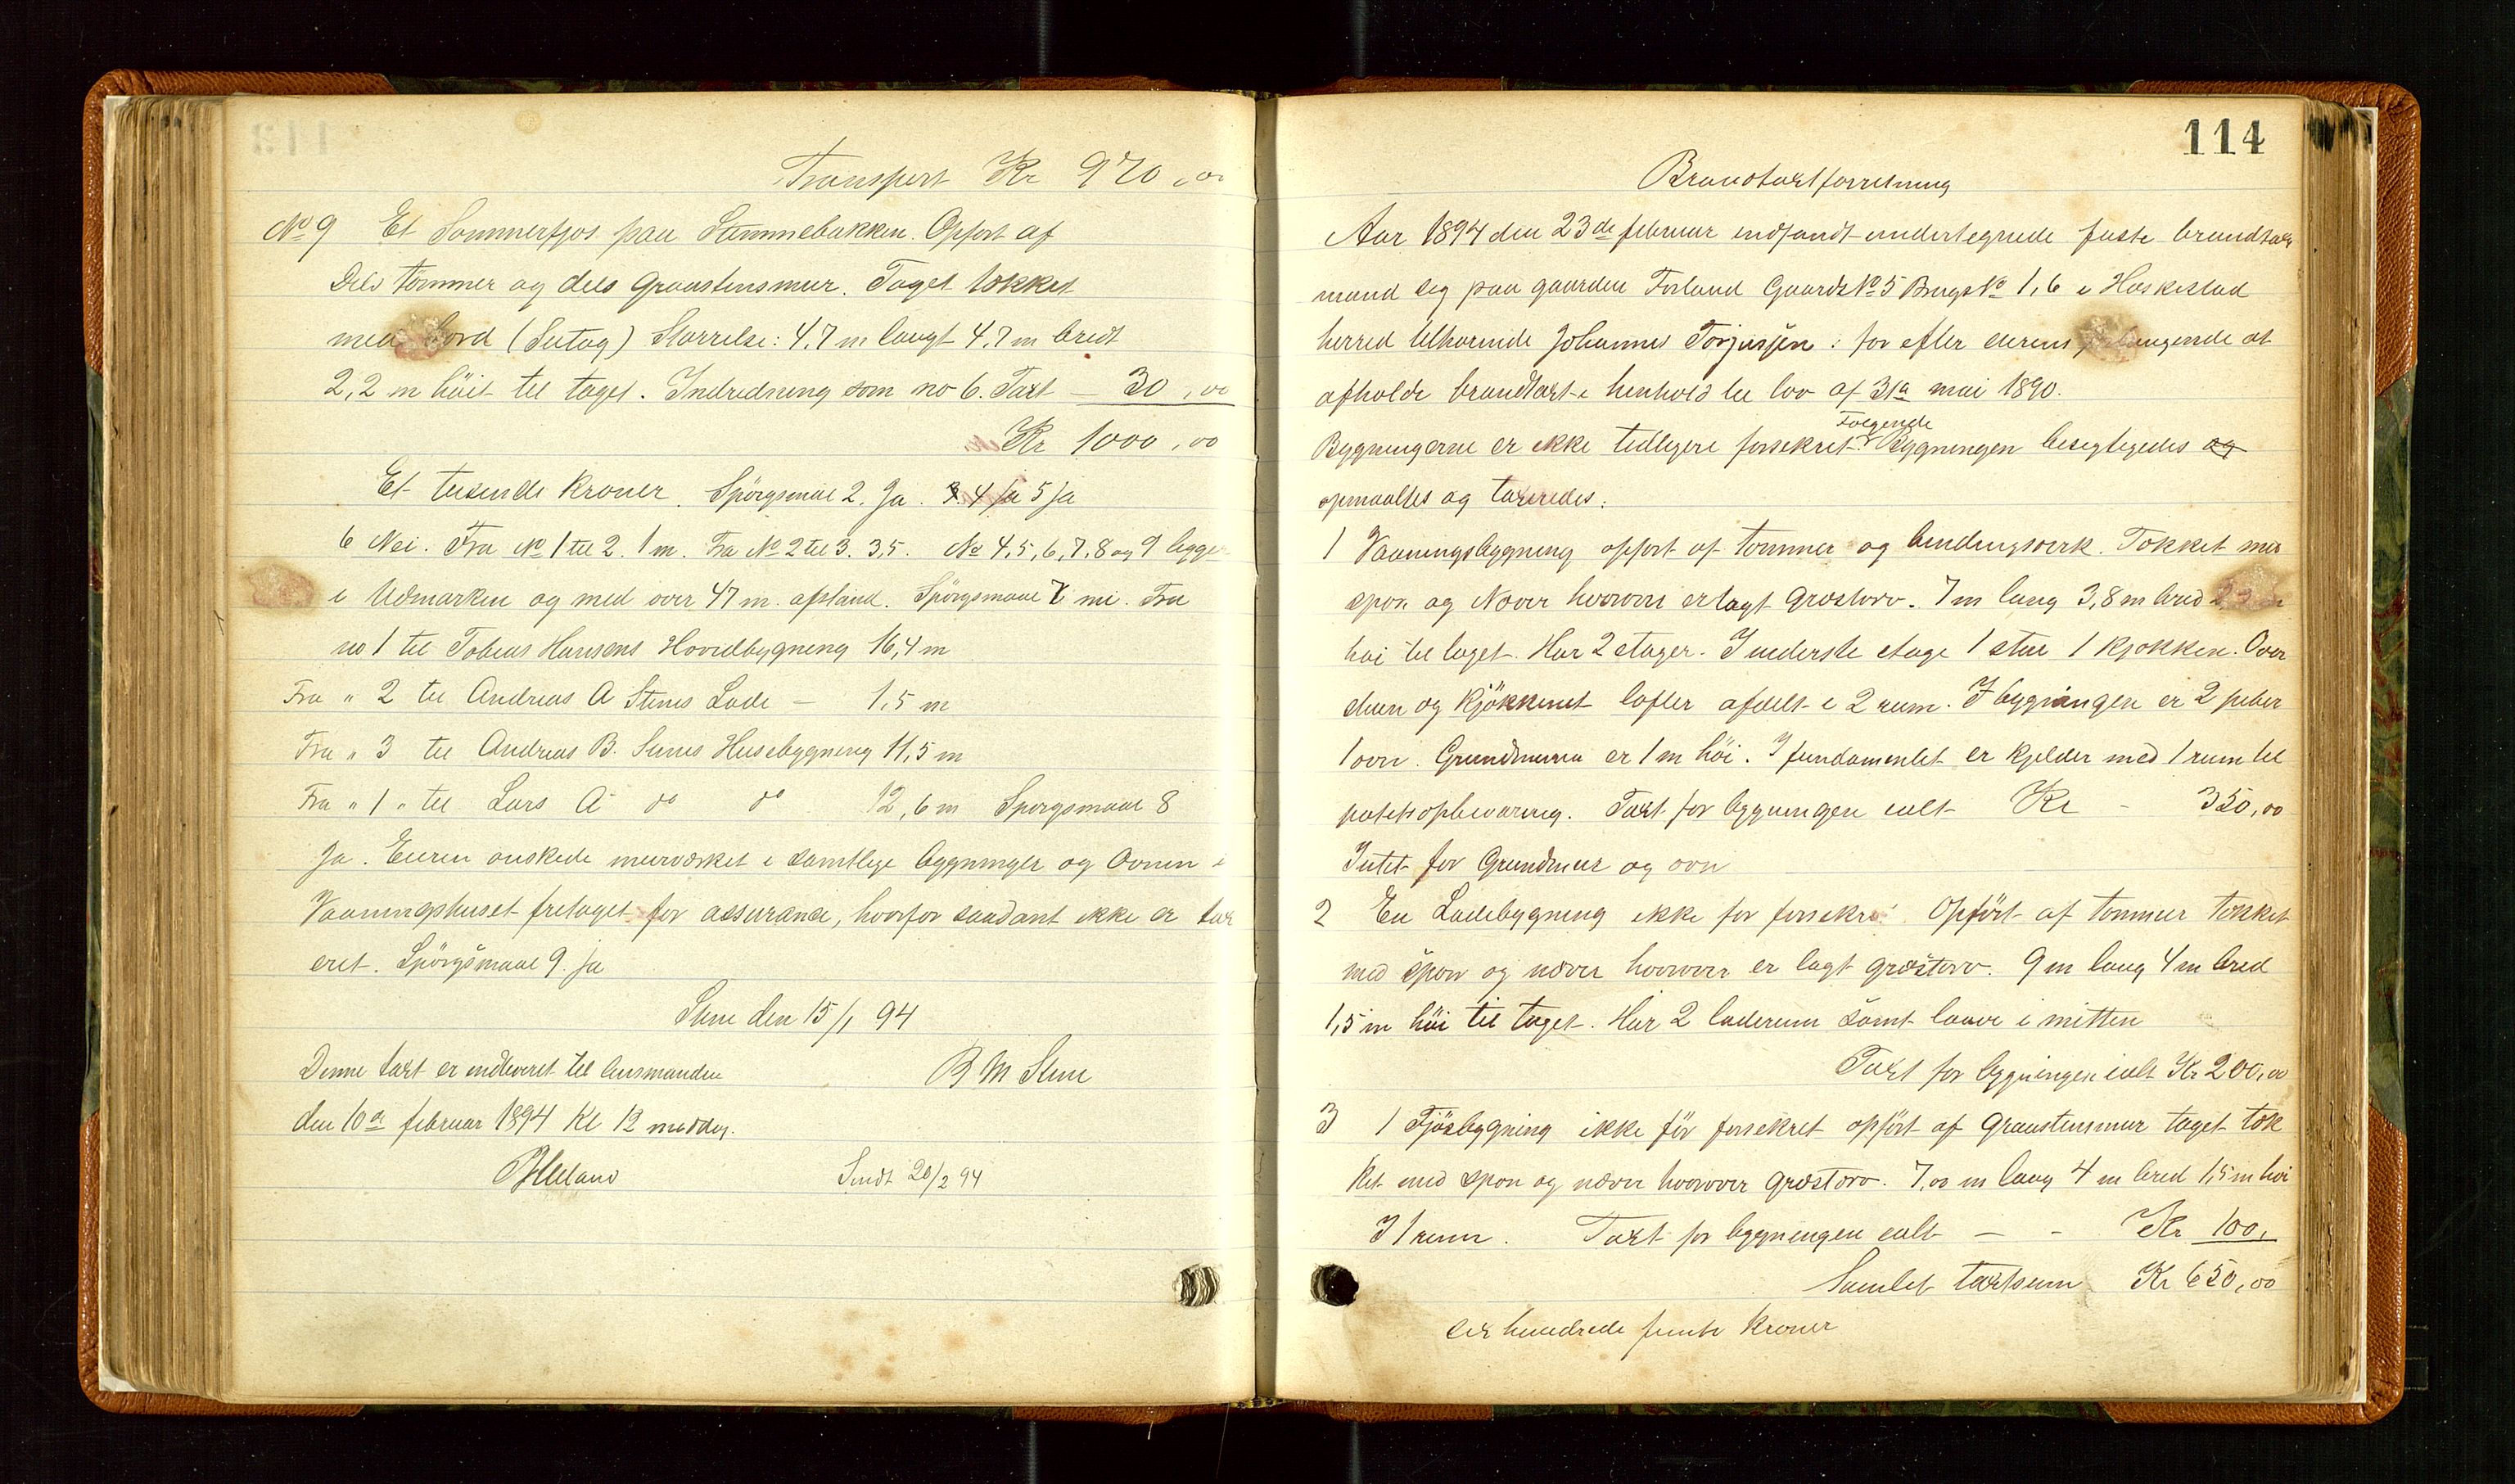 Transport Kr 970,00
No 9 Et Sommerfjos paa Stemmebakken. Opfort af
Dels tömmer og dels graastensmur. Taget tækket
med bord (Sutag) Storrelse: 4,7 m langt 4,7 m bredt
2,2 m höit til taget. Indredning som no 6. Taxt – 30,00
Kr 1000,00
Et tusende Kroner. Spörgsmaal 2. Ja. 4 ja 5 ja
6 Nei. Fra No 1 til 2. 1 m. Fra No 2 til 3. 3,5. No 4,5,6,7,8 og 9 ligger
i Udmarken og med over 47 m. afstand. Spörgsmaal 7 nei. Fra
no 1 til Tobias Hansens Hovedbygning 16,4 m
Fra " 2 til Andreas A Stenes Lade – 1,5 m
Fra " 3 til Andreas B. Stenes Husebygning 11,5 m
Fra " 1 " til Lars A do do 12,6 m Sporgsmaal 8
Ja. Eieren onskede murværket i samtlige bygninger og Ovnen i
Vaaningshuset fretaget for assurance, hvorfor saadant ikke er tax
eret. Spörgsmaal 9. Ja
Stene den 15/1 94
Denne taxt er indleveret til lensmanden B M Stene
den 10de februar 1894 Kl 12 middag.
Sendt 20/2 94
114
Brandtaxtforretning
Aar 1894 den 23de februar indfandt undertegnede faste brandtax
mand sig paa gaarden Forland Gaards No 5 Brugs No 1,6 i Heskestad
herred tilhorende Johannes Torjusjen : for efter eierens forlangende at
afholde brandtaxt i henhold til lov af 31a mai 1890.
Folgende
Bygningerne er ikke tidligere forsekret. Bygningen besigtigedes og
opmaaltes og taxeredes:
1 Vaaningsbygning opfort af tommer og bindingsverk. Tækket med
spon og Næver hvorover er lagt Græstorv. 7 m lang 3,8 m bred
hoi til taget. Har 2 etager. I underste etage 1 stue 1 kjokken. Over
stuen og kjökkenet lofter afdelt i 2 rum. I bygningen er 2 piber
1 ovn. Grundmuren er 1 m höi. I fundamentet er kjelder med 1 rum til
potetsopbevaring. Taxt for bygningen ialt Kr – 350,00
Intet for Grundmur og ovn
2 En Ladebygning ikke for forsekret. Opfört af tommer tækket
med spon og næver hvorover er lagt græstorv. 9 m lang 4 m bred
1,5 m höi til taget. Har 2 laderum samt laave i mitten
Taxt for bygningen ialt Kr 200,00
3 1 Fjösbygning ikke för forsekret opfört af Graastensmur taget tæk
ket med spon og næver hvorover græstorv. 7,00 m lang 4 m bred 1,5 m hoi
I 1 rum. Taxt for bygningen ialt – - Kr 100,
Samlet taxtsum Kr 650,00
sex hundrede femti Kroner